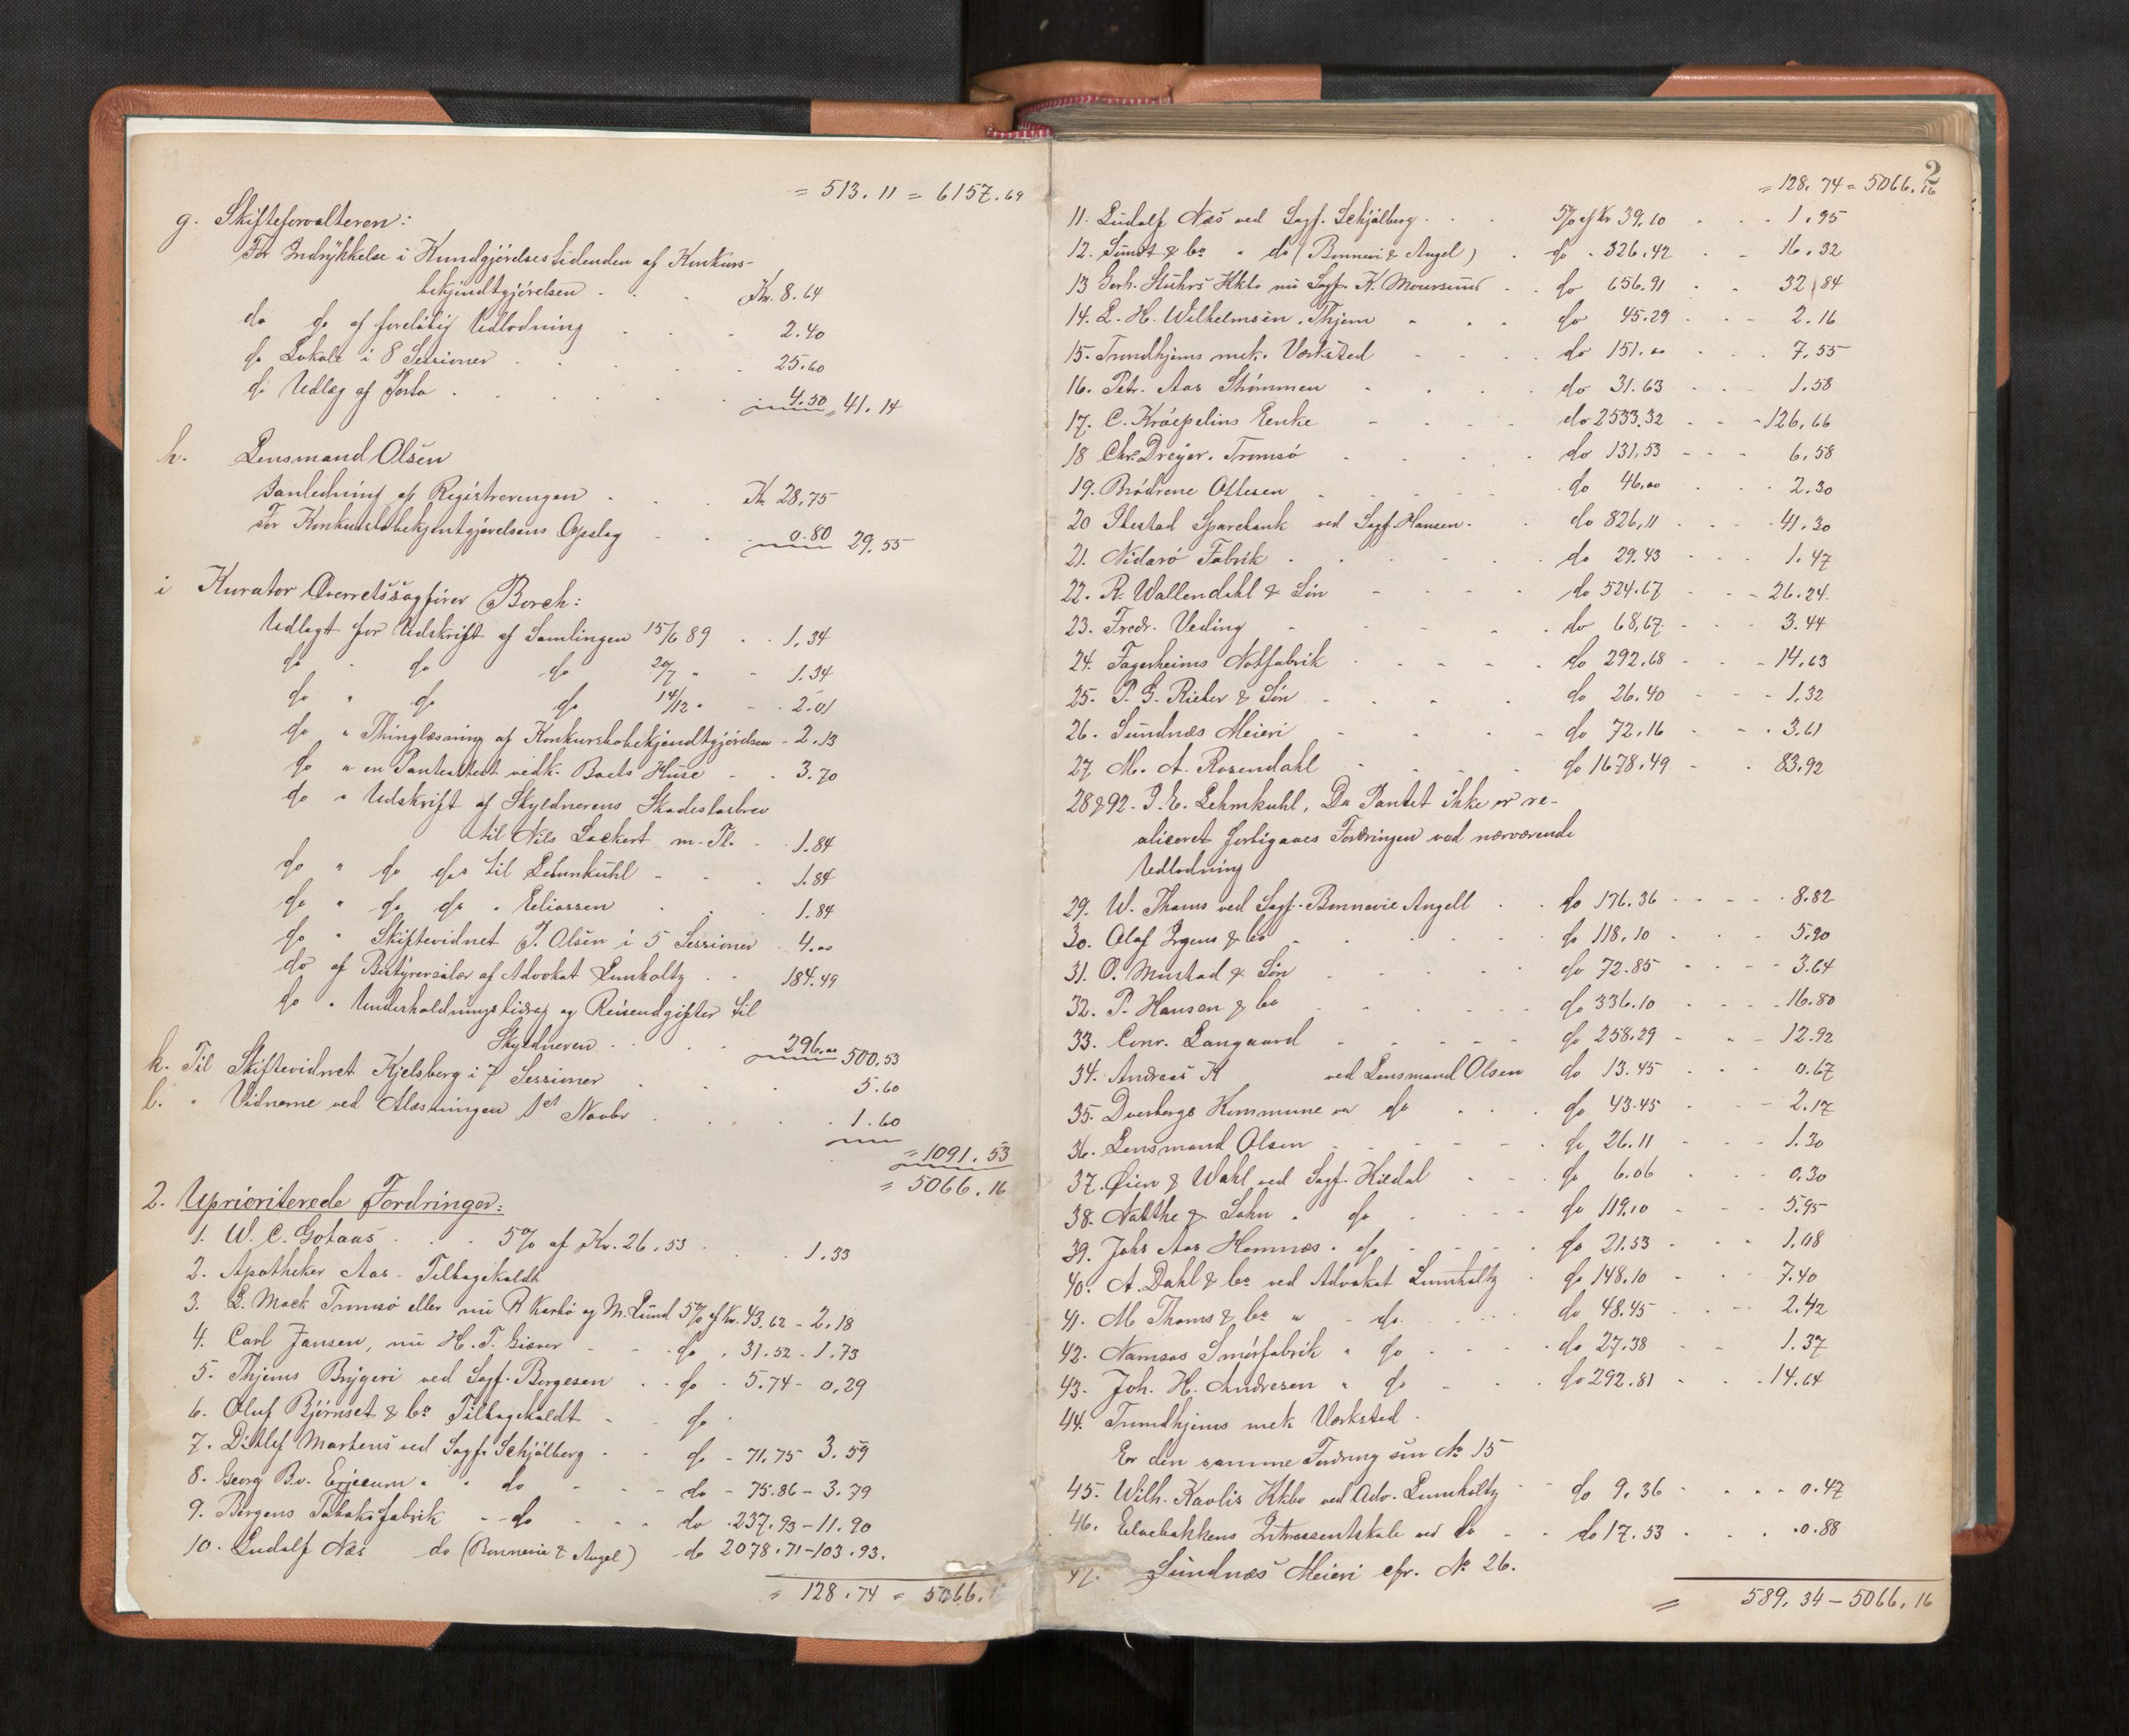 = 513.11 = 6157.69
g. Skifteforvalteren:
For Indrykkelse i Kundgjørelsestidenden af Konkurs-
bekjendtgjørelsen . . . Kr. 8.64
do do af foreløbig Udlodning . . . 2.40
do Lokale i 8 Sessioner . . . 25.60
do Udlæg af Porto . . . 4.50 = 41.14
h. Lensmand Olsen
Ianledning af Registreringen . . Kr 28,75
For Konkursbobekjentgjørelsens Opslag . . 0.80 29.55
i Kurator Overretssagfører Borch:
Udlagt for Udskrift af Samlingen 15/6 89 . . 1.34
do " do do 20/7 " - 1.34
do " do do 14/12 " - 2.01
do " Thinglæsning af Konkursbobekjendtgjørelsen - 2.13
do " en Panteattest vedk. Baets Huse - . 3.70
do " Udskrift af Skyldnerens Skadesløsbrev
til Nils Lockert m. Fl. . 1.84
do " do do til Lehmkuhl - - . 1.84
do " do do " Eliassen . . . 1.84
do " Skiftevidnet J. Olsen i 5 Sessioner . 4.00
do af Bestyrersalær af Advokat Lumholtz . . 184.49
do " Underholdningsbidrag og Reiseudgifter til
Skyldneren . . . 296.00 500.53
k. Til Skiftevidnet Kjelsberg i 7 Sessioner . . . 5.60
l. " Vidnerne ved Aflæsningen 1st Novbr . . . 1.60
= 1091.53
= 5066.16
2. Uprioriterede Fordringer:
1. W. C. Gotaas . . . 5% af Kr. 26.53 . . . 1.33
2. Apotheker Aas - Tilbagekaldt
3. L. Mack Tromsø eller nu R Karbø og M. Lund 5% af Kr. 43.62 - 2.18
4. Carl Jansen, nu H. T. Giæver - - do . 31.52 - 1.73
5. Thjems Bryggeri ved Sagf. Borgesen . . do - 5.74 - 0.29
6. Oluf Bjørnset & Co Tilbagekaldt - - do .
7. Ditlef Martens ved Sagf. Schjølberg - - do - 71.75 3.59
8. Georg B.v. " " do - - - do - 75.86 - 3.79
9. Bergens Tobaksfabrik - - do - - - do . 237.93 - 11.90
10. Ludolf Næs do (Bonnevie & Angel) do 2078.71 - 103.93.
= 128.74 = 5066.
2
= 128.74 = 5066.16
11. Ludolf Næs ved Sagf. Schjølberg . . . 5% af Kr 39.10 . . . 1.95
12. Sundt & Co " do (Bonnevie & Angel) . do . 326.42 . - 16.32
13 Gerh. Stuhrs Kkbo nu Sagf. K. Moursund . . do 656.91 . . 32.84
14. L. H. Wilhelmsen. Thjem - . . do 45.29 - - - 2.16
15. Trondhjems mek. Værksted - . . do 151.00 . . . 7.55
16. Petr. Aas Stømmen - . . . do 31.63 . . . 1.58
17. C. Kröepelins Enke - - - do 2533.32 - - - 126.66
18 Chr. Dreyer. Tromsø . . . . do 131.53 - - - 6.58
19. Brødrene Ottesen . . . . do 46.00 . . . 2.30
20 Ibestad Sparebank ved Sagf. Hansen . . do 826,11 . . . 41.30
21. Nidarø Fabrik . . . . do 29.43 - - - 1.47
22. R. Wallendahl & Søn - - - - do 524.67 . - - 26.24.
23. Fredr. Veding - - - do 68,67. - - - 3.44
24. Fagerheims Notfabrik . - - - do 292.68 - - - 14.63
25. P. G. Rieber & Søn - - . . do 26.40 - - - 1.32
26. Sundnæs Meieri - - - - do 72.16 - - . 3.61
27 M. A. Rosendahl - - - - do 1678.49 - . 83.92
28 & 92. J. E. Lehmkuhl. Da Pantet ikke er re-
aliseret forbigaaes Fordringen ved nærværende
Udlodning
29. W. Thams ved Sagf. Bonnevie Angell . . do 176.36 - - - 8.82
30. Olaf Irgens & Co - - - do 118.10 - - - 5.90
31. O. Mustad & Søn - - - do 72.85 - - - 3.64
32. P. Hansen & Co . . . - do 336.10 - - - 16.80
33. Conr. Langaard - - - - do 258.29 - - - 12.92
34. Andreas K ved Lensmand Olsen do 13.45 . . . 0.67
35. Dverbergs Kommune ved do . . . do 43.45 . . - 2.17
36. Lensmand Olsen - - - - do 26.11 - - - 1.30
37. Øien & Wahl ved Sagf. Kildal - - . do 6.06 . . . 0.30
38. & Sohn " do . . . do 119.10 - - - 5.95
39. Johs Aas Hemnæs " do - - - do 21.53 . . . 1.08
40. A. Dahl & Co ved Advokat Lumholtz . do 148.10 - . . 7.40
41. M Thams & Co " - do . . . do 48.45 . . - 2.42
42. Namsos Smørfabrik " do . . . do 27.38 - - 1.37
43. Joh. H. Andresen " do - - . do 292.81 . . . 14.64
44. Trondhjems mek Værksted .
Er den samme Fordring som No 15
45. Wilh. Kavlis Kkbo ved Adv. Lumholtz - - do 9.36 . . . 0.47
46. Interessentskab ved do - . . do 17.53 . . . 0.88
47. Sundnæs Meieri cfr. No 26.
= 589.34 - 5066.16